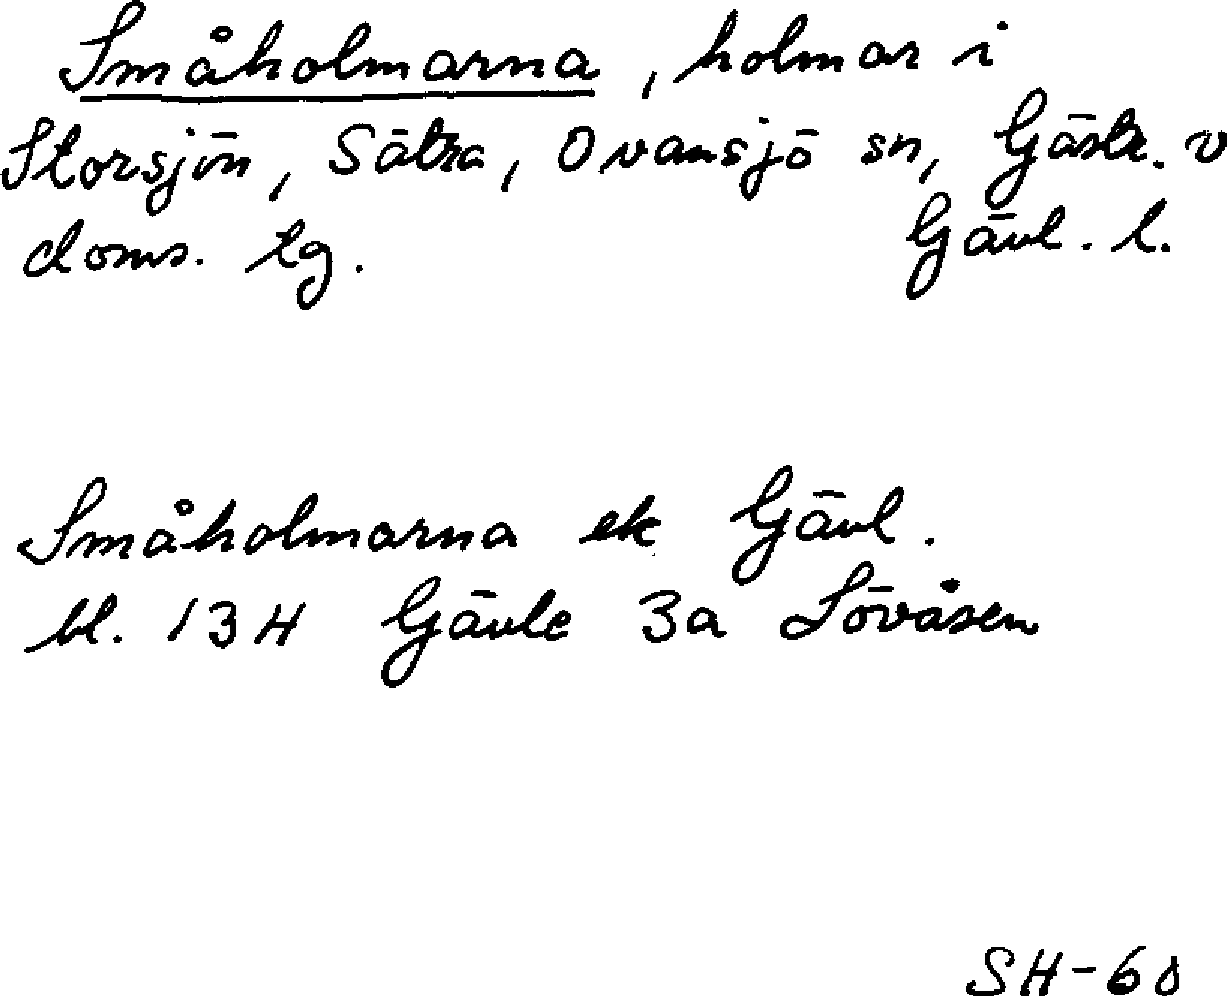 Småholmarna, holmar i
Storsjön, Sätra, Ovansjö sn, Gästr. v
doms. tg. Gävl. l.
Småholmarna ek Gävl.
bl. 13H Gävle 3a Lövåsen
SH-60